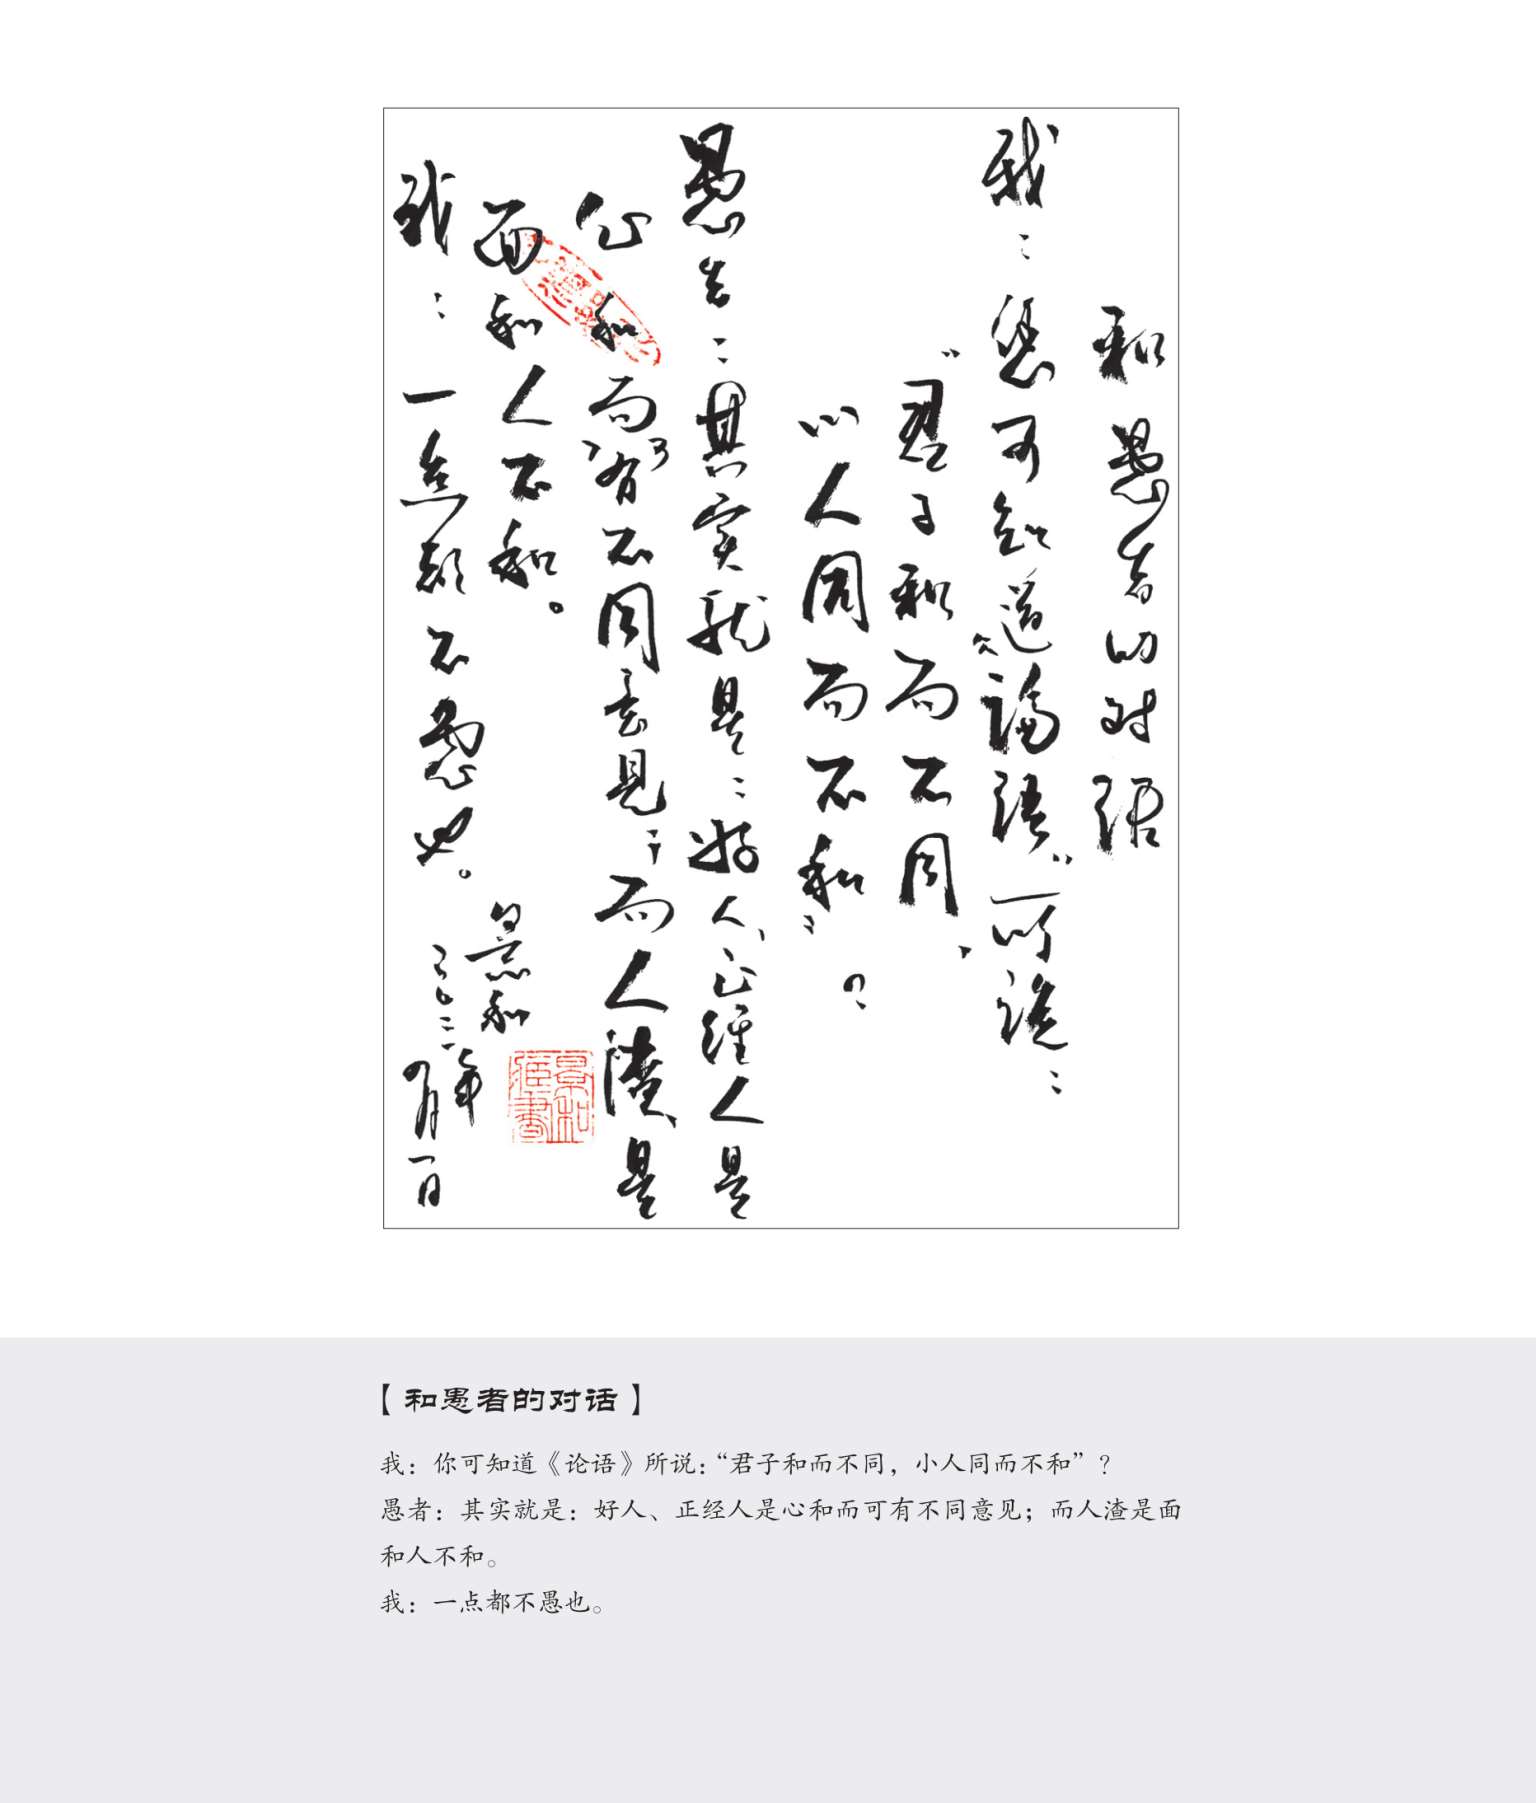 和愚者的对话
我：您可知道“論語”所説：
“君子和而不同，
小人同而不和”？
愚者：其实就是：好人、正経人是
心和而可有不同意見；而人渣是
面和人不和。
我：一点都不愚也。
景和
二〇二一年
四月一日
【和愚者的对话】
我：你可知道《论语》所说：“君子和而不同，小人同而不和”？
愚者：其实就是：好人、正经人是心和而可有不同意见；而人渣是面
和人不和。
我：一点都不愚也。